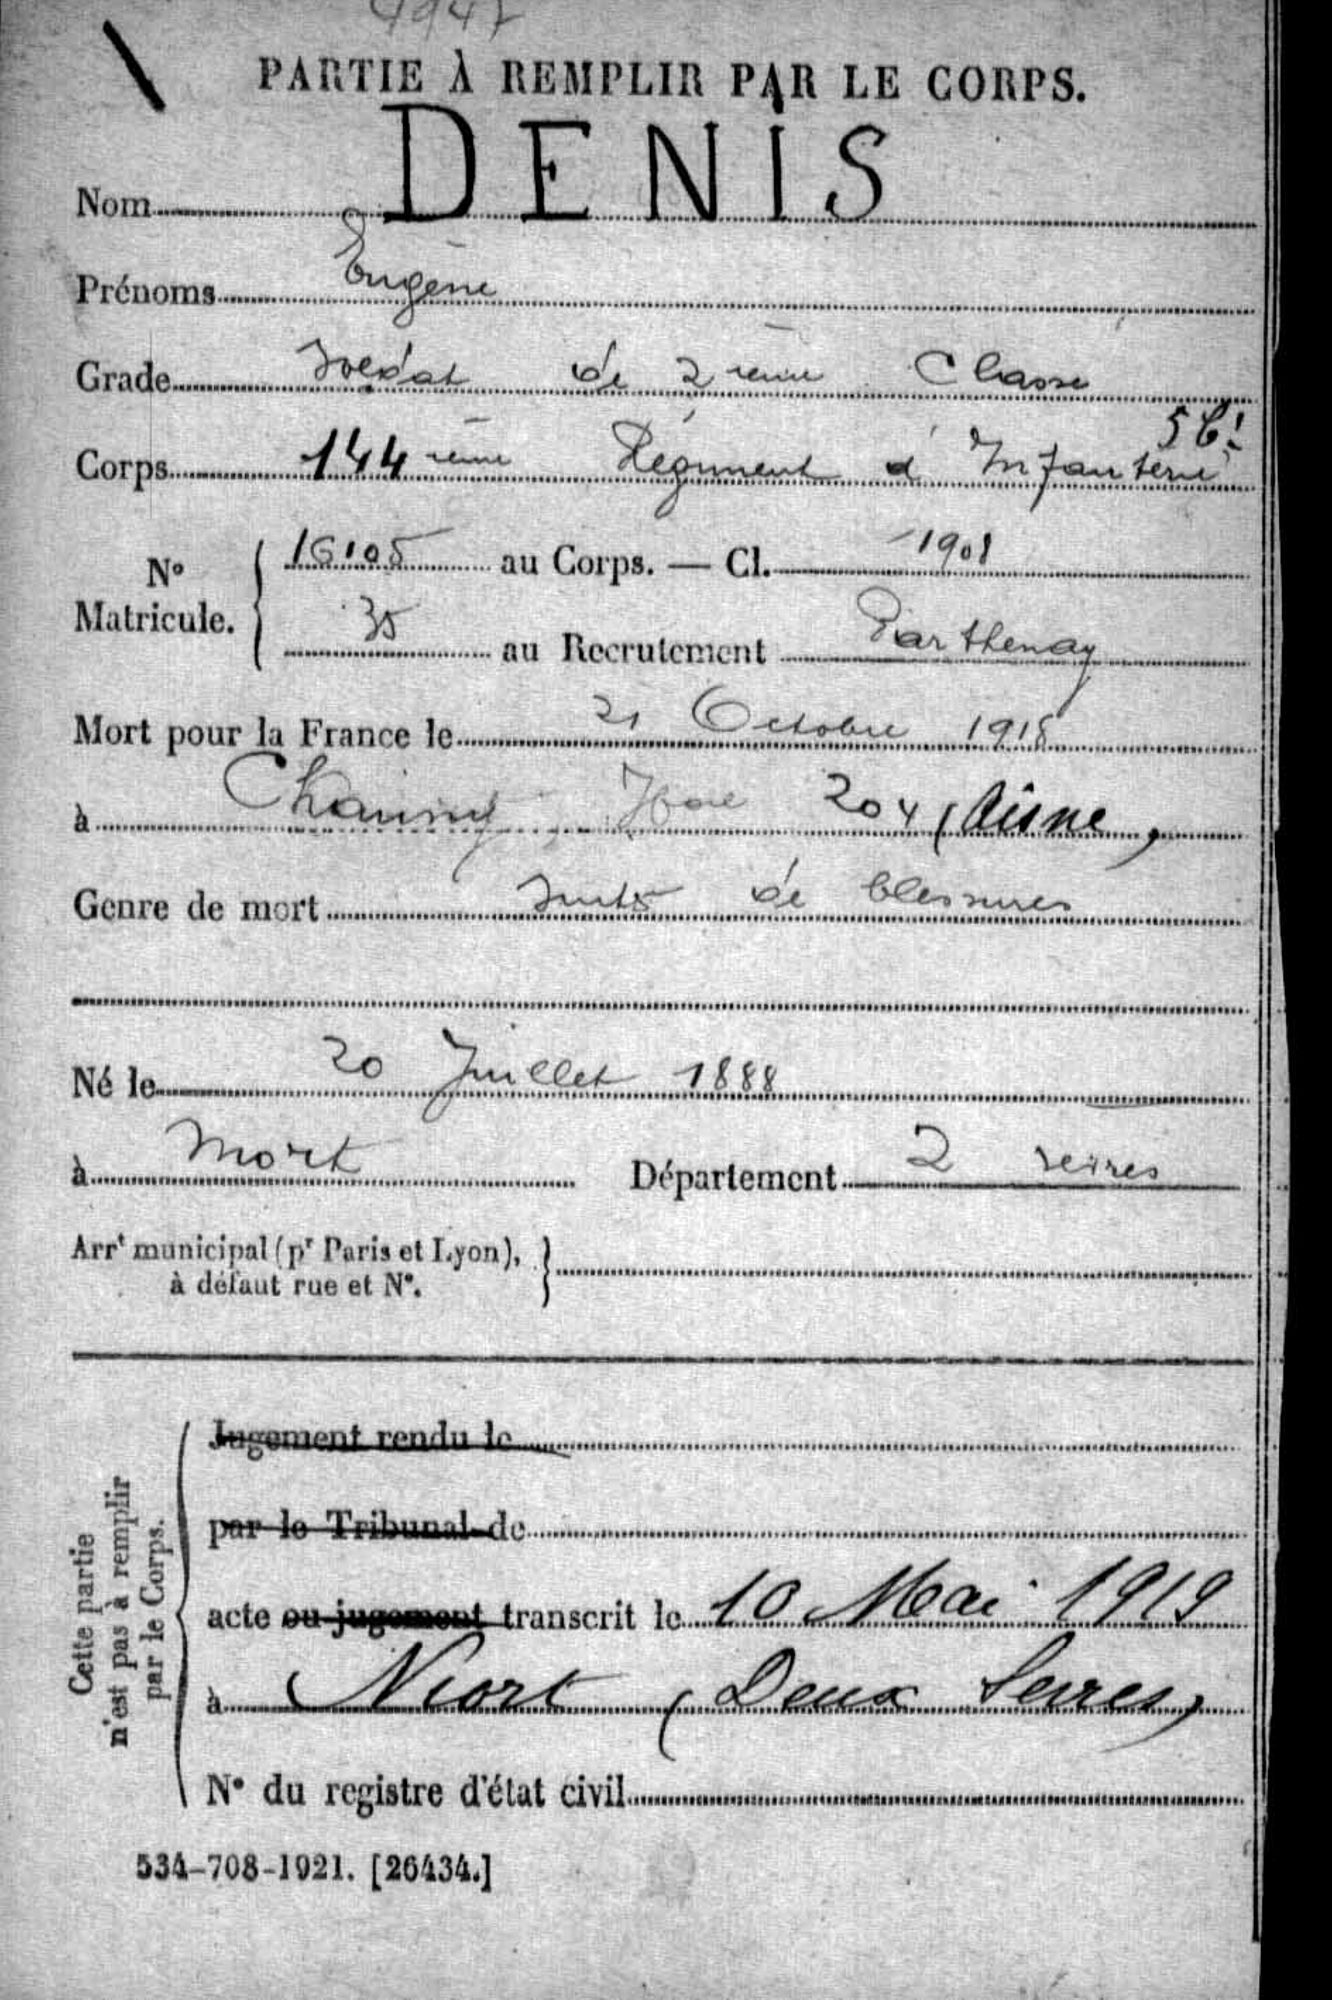 4947
PARTIE À REMPLIR PAR LE CORPS.
Nom DENIS
Prénoms Eugène
Grade Soldat de 2ième Classe
5 Cie
Corps 144ième Régiment d'Infanterie
No Matricule. 16105 au Corps. — Cl. 1908
35 au Recrutement Parthenay
Mort pour la France le 21 Octobre 1918
à Chauny Hoe 204 (Aisne)
Genre de mort Suite de blessures
Né le 20 Juillet 1888
à Niort Département 2 sèvres
Arrt municipal (pr Paris et Lyon),
à défaut rue et No.
Cette partie
n'est pas à remplir
par le Corps.
Jugement rendu le
par le Tribunal de
acte ou jugement transcrit le 10 Mai 1919
à Niort (Deux Sevres)
No du registre d'état civil
534-708-1921. [26434.]